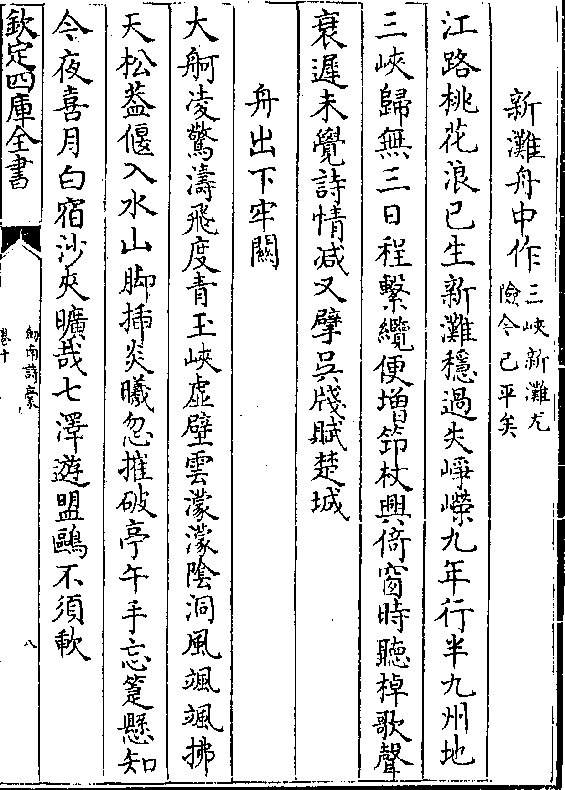 新灘舟中作三峽新灘尤
險今已平矣
江路桃花浪已生新灘穩過失崢嶸九年行半九州地
三峽歸無三日程繫纜便增笻杖興倚窗時聽棹歌聲
衰遲未覺詩情减又擘呉牋賦楚城
舟出下牢關
大舸凌驚濤飛度青玉峽虚壁雲濛濛陰洞風颯颯拂
天松葢偃入水山脚揷炎曦忽摧破亭午手忘箑懸知
今夜喜月白宿沙夾曠哉七澤遊盟鷗不須歃
欽定四庫全書
劍南詩藁
卷十
八